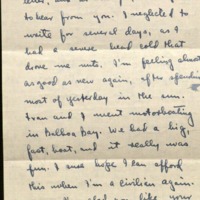 to hear from you. I neglected to
write for several days, as I
had a sense head cold that
drove me nuts. I'm feeling almost
as good as new again, after spending
most of yesterday in the sun.
Fran and I went motorboating
in Balboa Bay. We had a big,
fast, boat, and it really was
fun. I sure hope I can afford
this when I'm a civilian again.
you like your